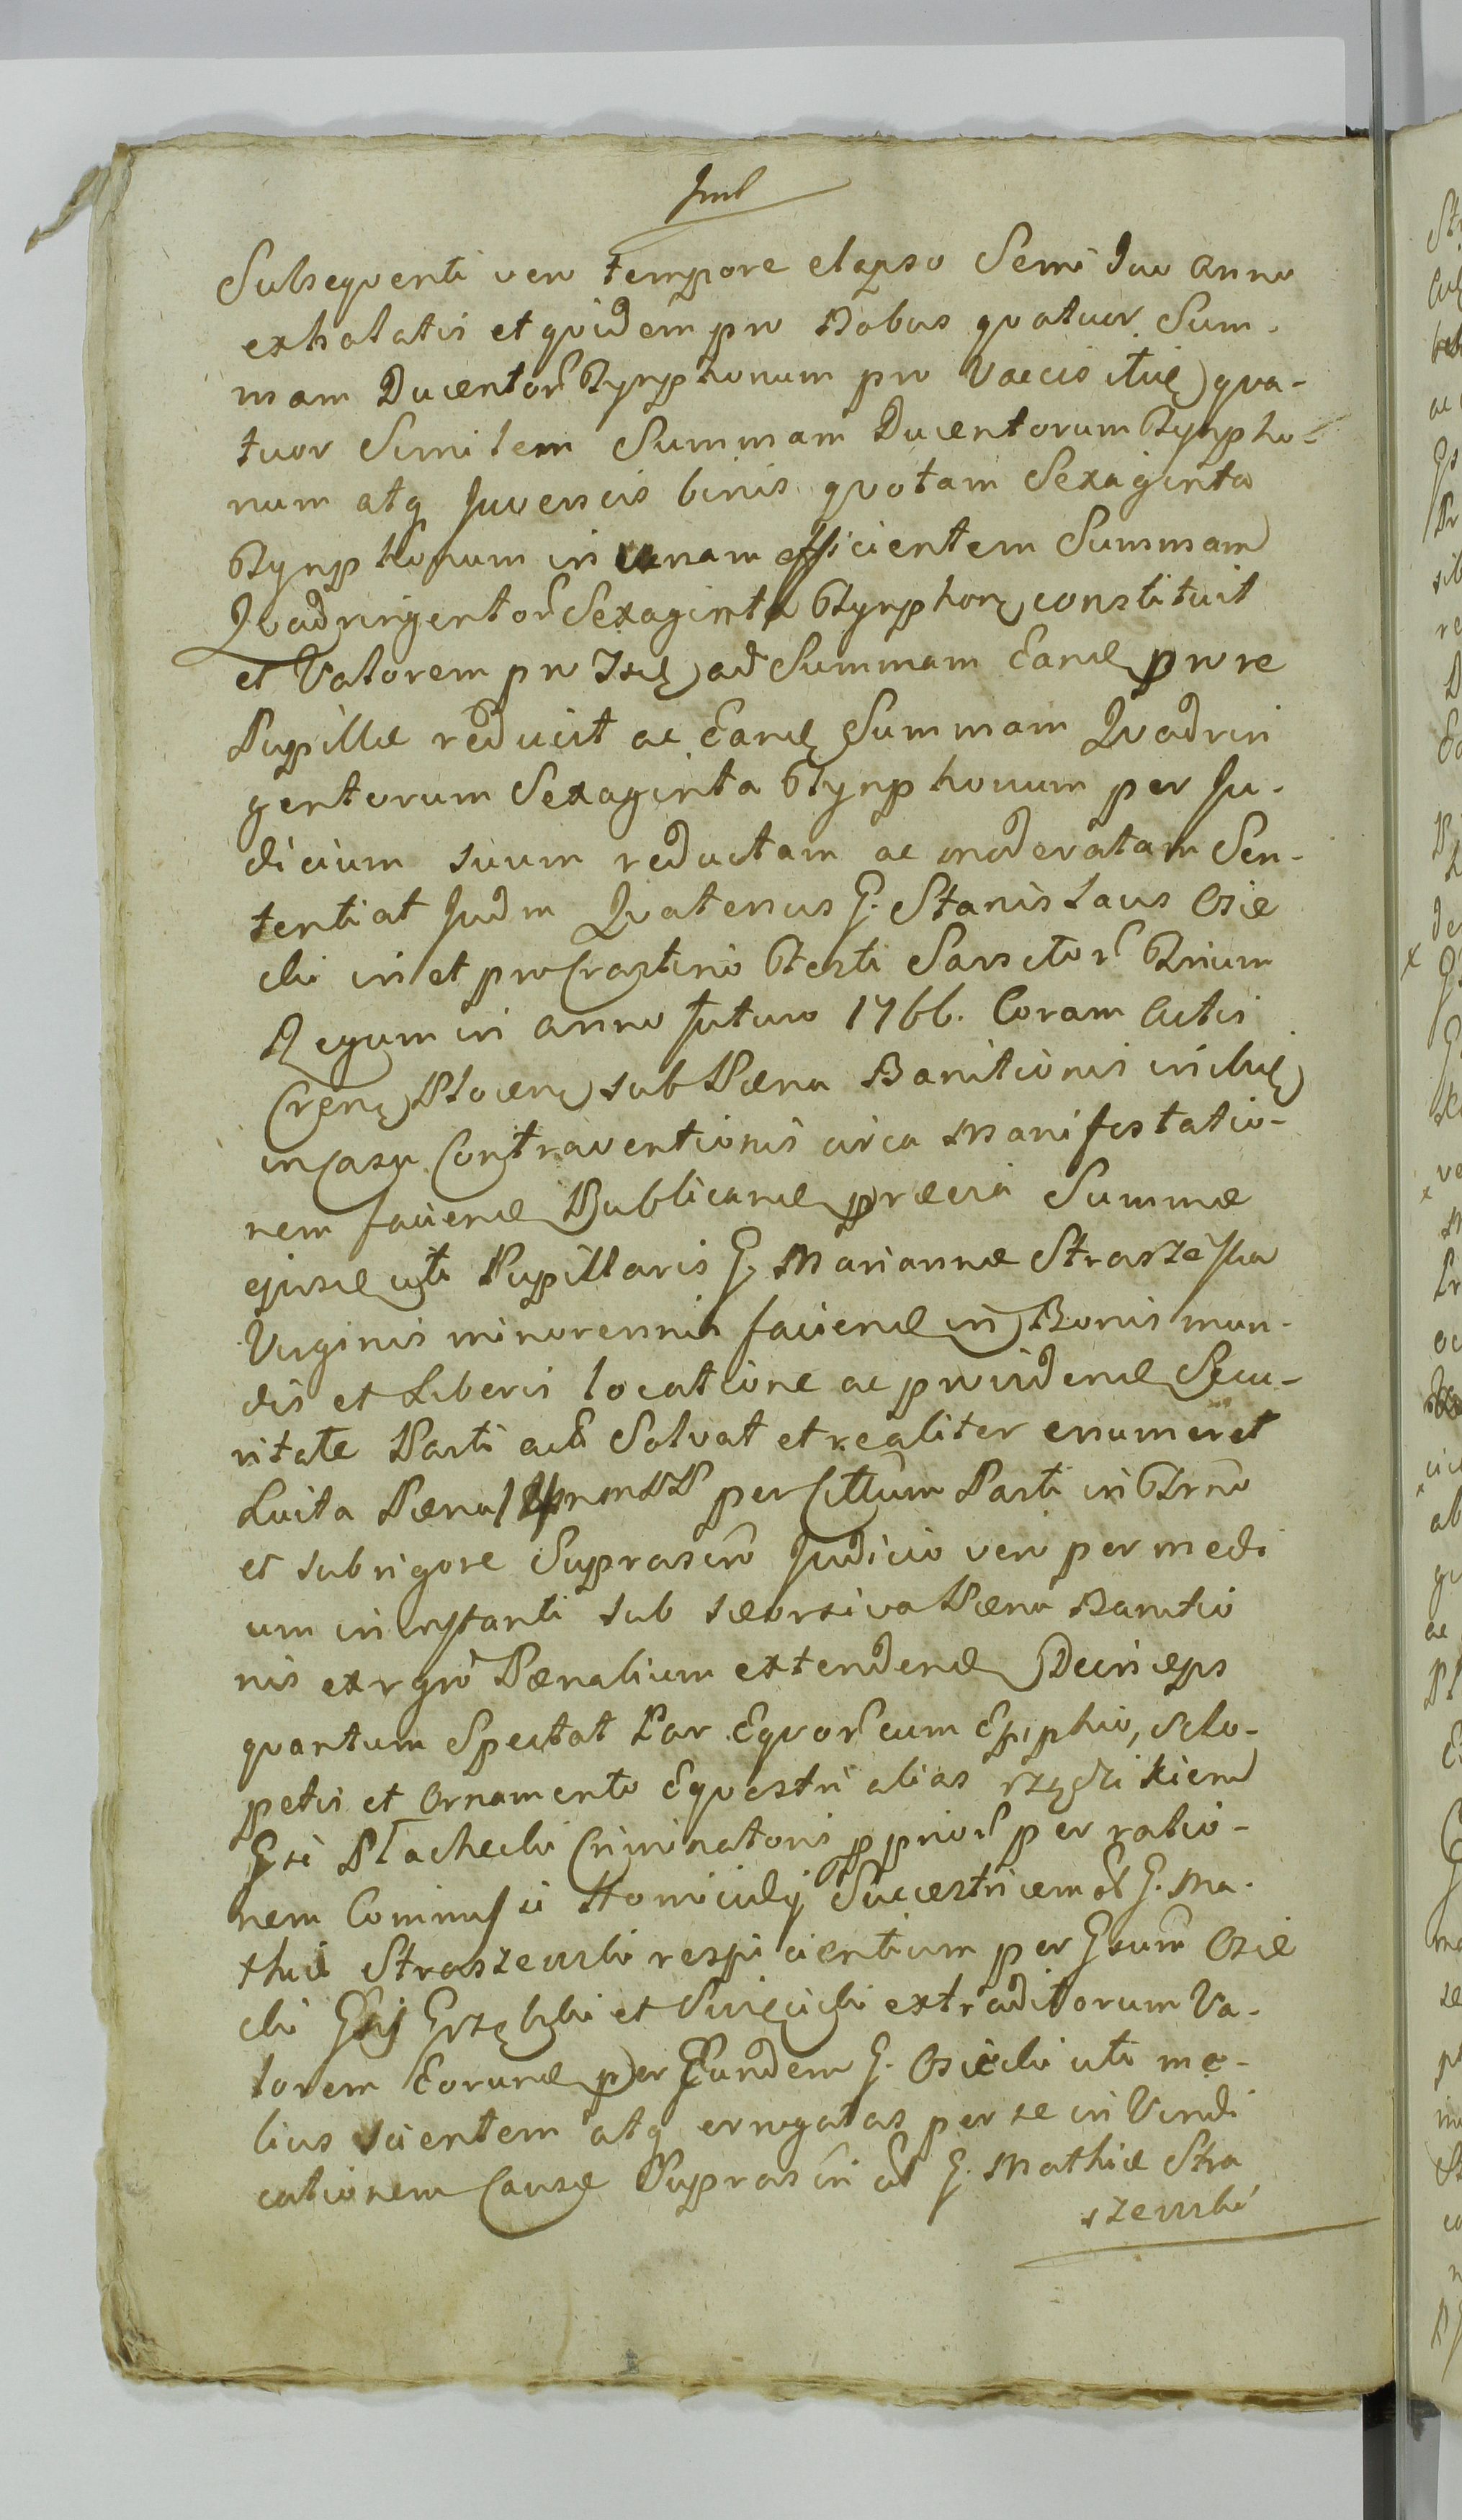 Subsequenti vero tempore elapso Semi duo anno
exhalatis et quidem pro Bobus quatuor Sum-
mam Ducentor Tynphonum pro Vaccis itid qua-
tuor Similem Summam Ducentorum Tynpho-
num atq Juvencis binis quotam Sexaginta
Tynphonum in unam efficientem Summam
Quadringentor Sexaginta Tynphon constituit
et Valorem pro ad Summam Eand pro re
Pupillæ reducit ac Eand Summam Quadrin
gentorum Sexaginta Tynphonum per Ju-
dicium suum reductam ac moderatam Sen-
tentiat Judm Quatenus G. Stanislaus Osie
cki in et pro Crastino Festi Sanctor Trium
Regum in anno futuro 1766. Coram Actis
Plocen sub Pæna Banitionis
in Casu Contraventionis circa Manifestatio-
nem faciend Publicand præviâ Summæ
ejusd uti Pupillaris G. Mariannæ Straszeska
Virginis minorennis faciend in Bonis mun-
dis et Liberis locatione ac providend Secu-
ritate Parti act Solvat et realiter enumeret
Luita Pæna per Parti in Trno
et sub rigore Suprascro Judicio vero per medi
um in instanti sub seorsiva Pæna Banitio
nis ex rgro Pænalium extendend Deinceps
quantum Spectat Par Equor cum Ephipio, Sclo-
petis et Ornamento Equestri alias rzędzikiem
Gsi Płachecki Criminatoris pprior per ratio-
nem Commissi Homicidij Successricem G. Ma-
thiæ Straszewski respicientium per Gsum Osie
cki Grzębski et Święcicki extraditorum Va-
lorem Eorund per Eundem G. Osiecki uti me-
lius scientem atq errogatas per se in Vindi
cationem Causæ Suprascri G. Mathiæ Stra
szewski